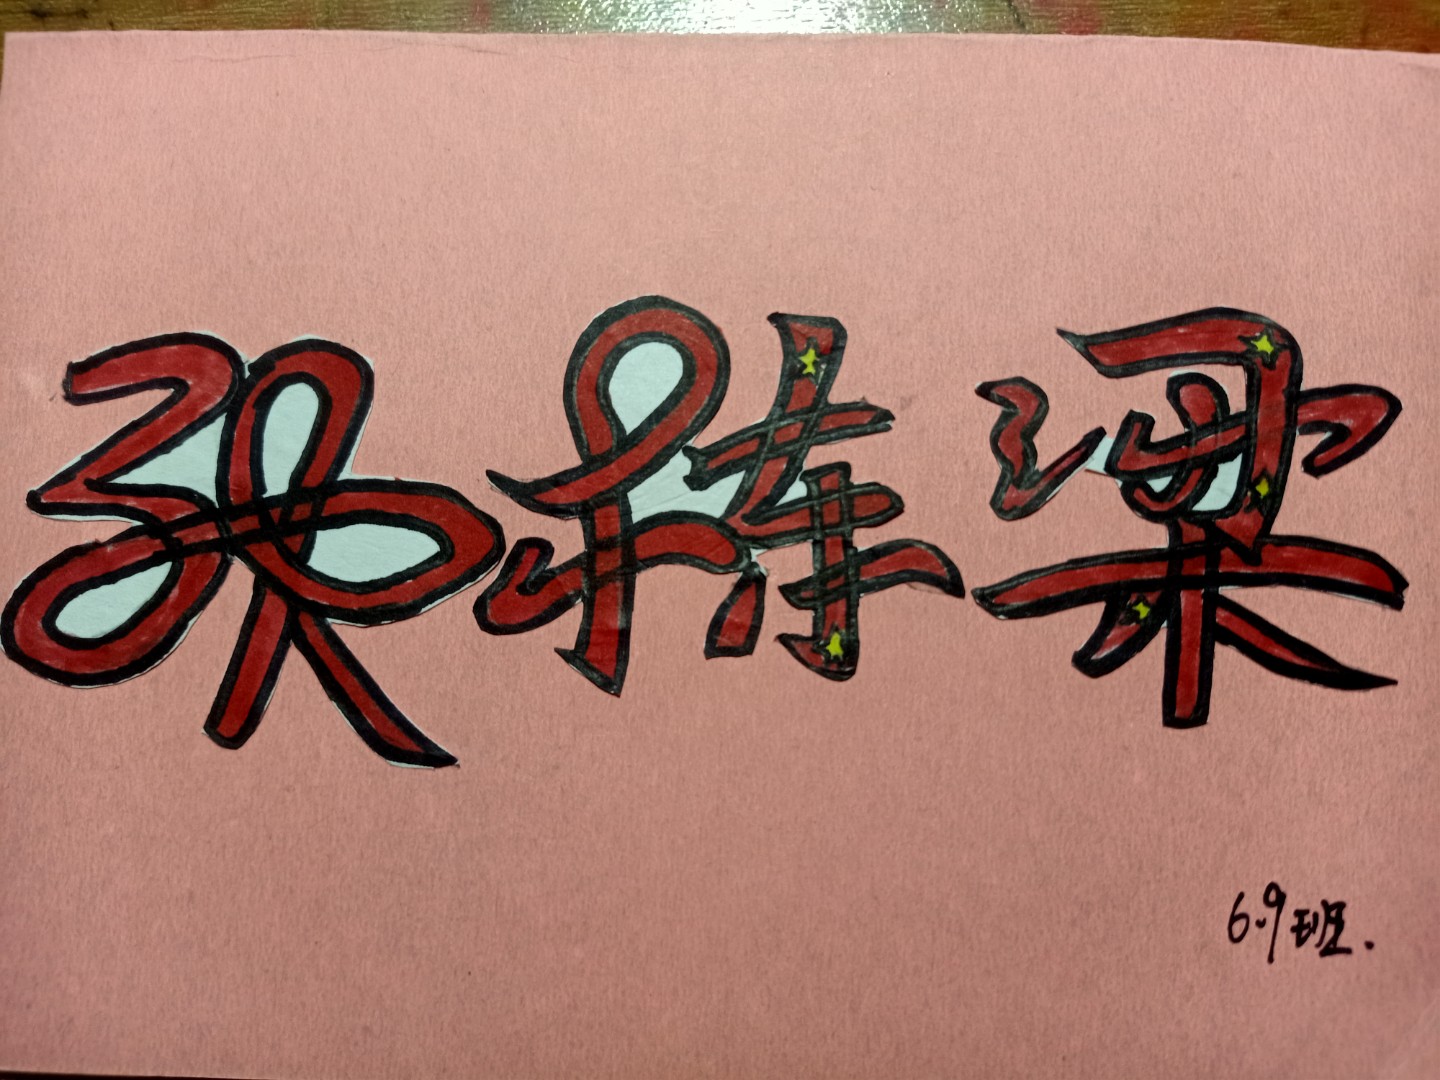 张梁
6.9班.